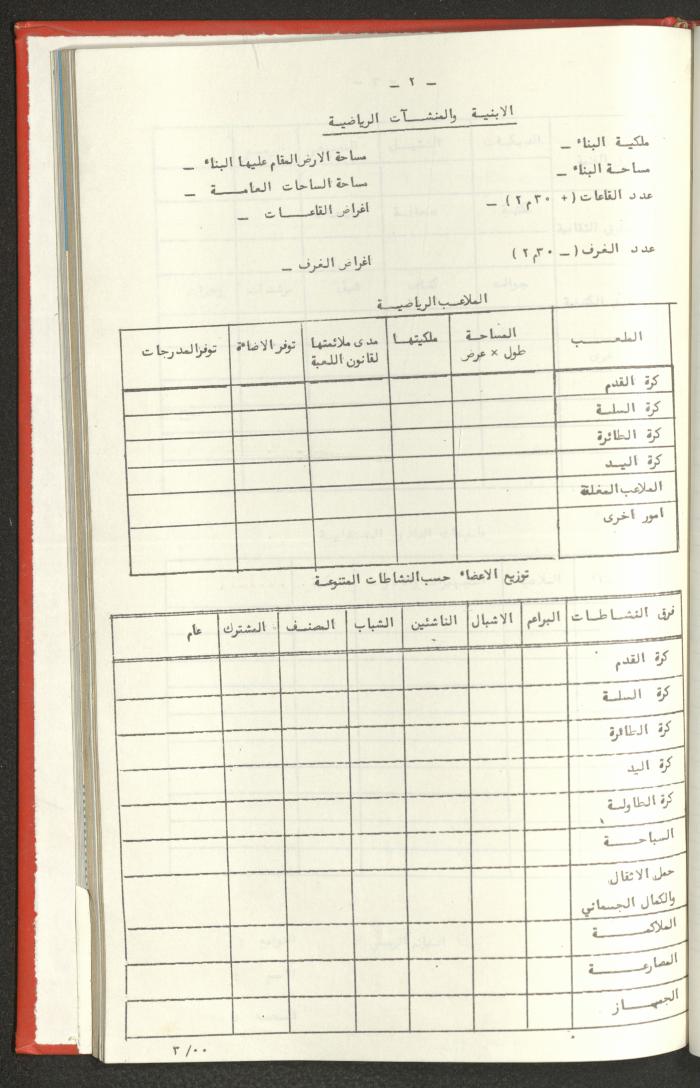 — ٢ —
الابنية والمنشآت الرياضية
ملكية البناء —
مساحة الارض المقام عليها البناء —
مساحة البناء —
مساحة الساحات العامة —
عدد القاعات (+ ٣٠م٢) —
اغراض القاعات —
عدد الغرف (— ٣٠م٢)
اغراض الغرف —
الملاعب الرياضية
الملعب المساحة طول × عرض ملكيتها مدى ملائمتها لقانون اللعبة توفر الاضاءة توفر المدرجات
كرة القدم
كرة السلة
كرة الطائرة
كرة اليد
الملاعب المغلقة
امور اخرى
توزيع الاعضاء حسب النشاطات المتنوعة
فرق النشاطات البراعم الاشبال الناشئين الشباب المصنف المشترك عام
كرة القدم
كرة السلة
كرة الطائرة
كرة اليد
كرة الطاولة
السباحة
حمل الاثقال
والكمال الجسماني
الملاكمة
المصارعة
الجمباز
٣/٠٠